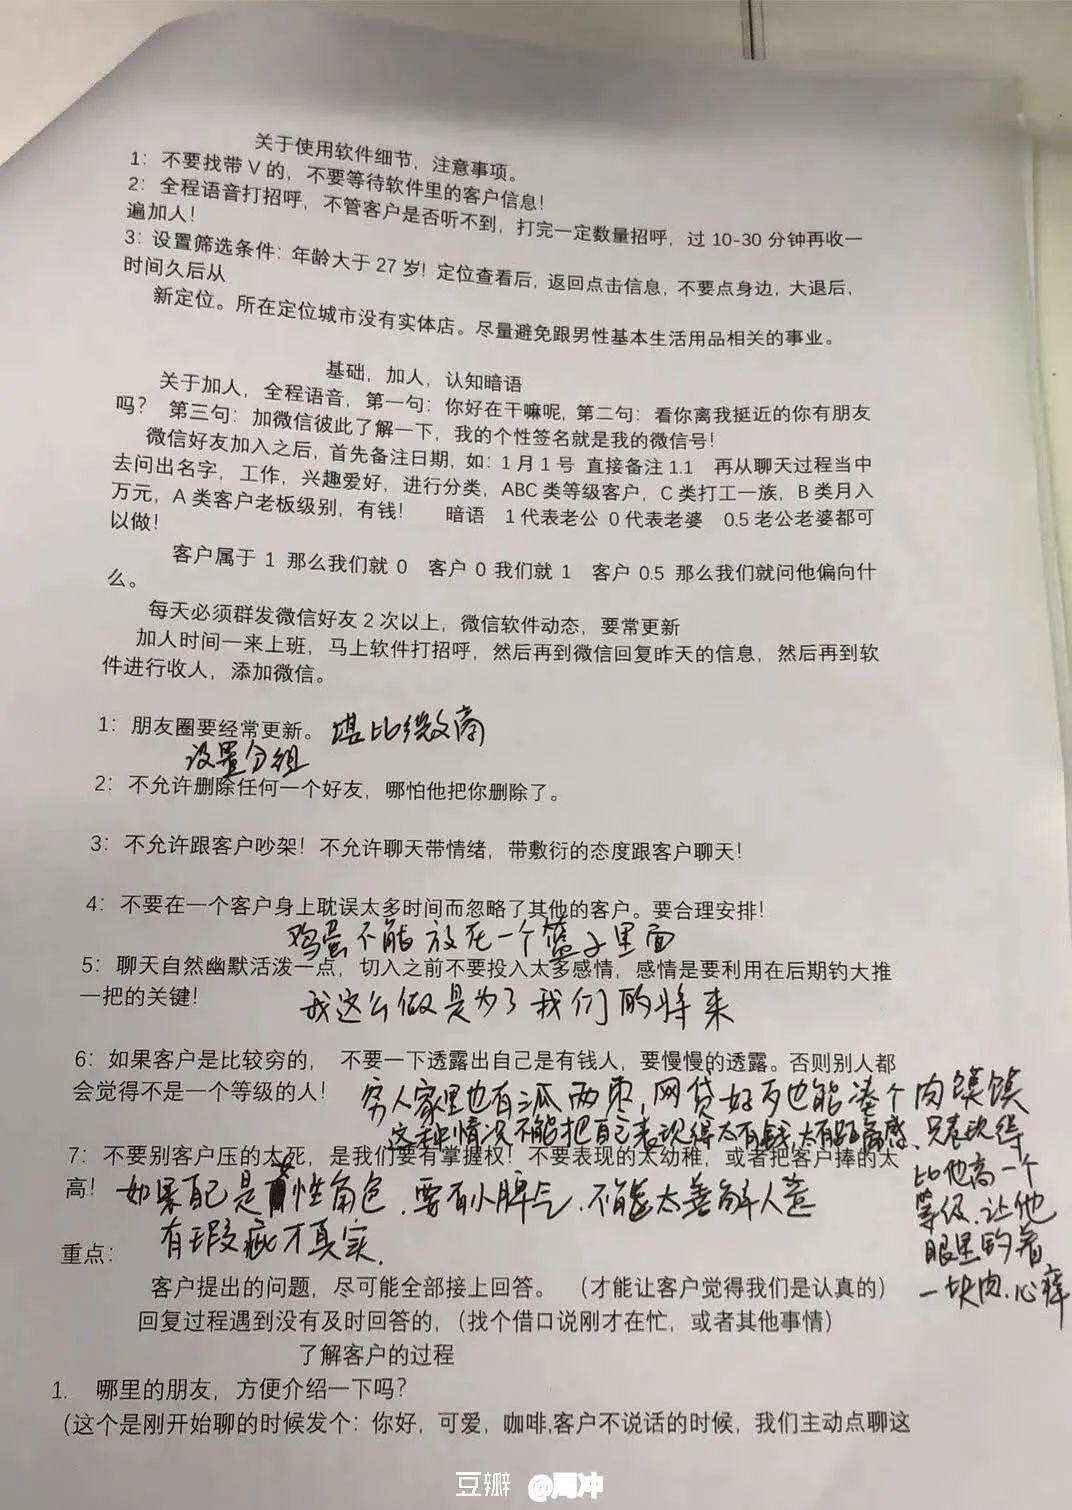 关于使用软件细节，注意事项。
1：不要找带 V 的，不要等待软件里的客户信息！
2：全程语音打招呼，不管客户是否听不到，打完一定数量招呼，过 10-30 分钟再收一
遍加人！
3：设置筛选条件：年龄大于 27 岁！定位查看后，返回点击信息，不要点身边，大退后，
时间久后从
新定位。所在定位城市没有实体店。尽量避免跟男性基本生活用品相关的事业。
基础，加人，认知暗语
关于加人，全程语音，第一句：你好在干嘛呢，第二句：看你离我挺近的你有朋友
吗？ 第三句：加微信彼此了解一下，我的个性签名就是我的微信号！
微信好友加入之后，首先备注日期，如：1 月 1 号 直接备注 1.1 再从聊天过程当中
去问出名字，工作，兴趣爱好，进行分类，ABC 类等级客户，C 类打工一族，B 类月入
万元，A 类客户老板级别，有钱！ 暗语 1 代表老公 0 代表老婆 0.5 老公老婆都可
以做！
客户属于 1 那么我们就 0 客户 0 我们就 1 客户 0.5 那么我们就问他偏向什
么。
每天必须群发微信好友 2 次以上，微信软件动态，要常更新
加人时间一来上班，马上软件打招呼，然后再到微信回复昨天的信息，然后再到软
件进行收人，添加微信。
1：朋友圈要经常更新。堪比微商
设置分组
2：不允许删除任何一个好友，哪怕他把你删除了。
3：不允许跟客户吵架！不允许聊天带情绪，带敷衍的态度跟客户聊天！
4：不要在一个客户身上耽误太多时间而忽略了其他的客户。要合理安排！
鸡蛋不能放在一个篮子里面
5：聊天自然幽默活泼一点，切入之前不要投入太多感情，感情是要利用在后期钓大推
一把的关键！ 我这么做是为了我们的将来
6：如果客户是比较穷的， 不要一下透露出自己是有钱人，要慢慢的透露。否则别人都
会觉得不是一个等级的人！ 穷人家里也有三瓜两枣，网贷好歹也能凑个肉馍馍
这种情况不能把自己表现得太有钱，太有距离感，只表现得
比他高一个
等级，让他
眼里盯着
一块肉，心痒
7：不要别客户压的太死，是我们要有掌握权！不要表现的太幼稚，或者把客户捧的太
高！ 如果自己是性角色，要有小脾气，不能太善解人意
有瑕疵才真实．
重点：
客户提出的问题，尽可能全部接上回答。（才能让客户觉得我们是认真的）
回复过程遇到没有及时回答的，（找个借口说刚才在忙，或者其他事情）
了解客户的过程
1. 哪里的朋友，方便介绍一下吗？
(这个是刚开始聊的时候发个：你好，可爱，咖啡,客户不说话的时候，我们主动点聊这
豆瓣 @周冲